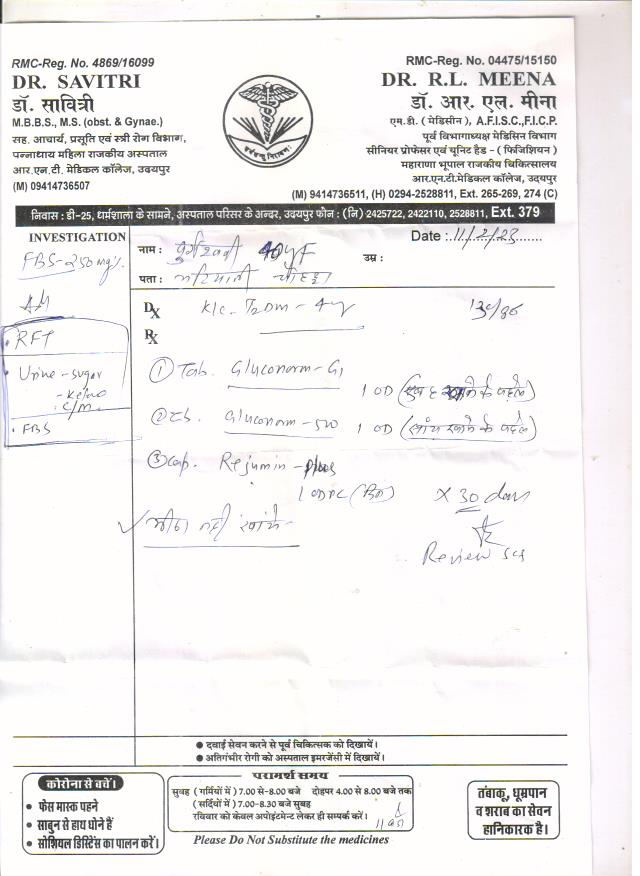 RMC-Reg. No. 4869/16099
DR. SAVITRI
डॉ. सावित्री
M.B.B.S., M.S. (obst. & Gynae.)
सह. आचार्य, प्रसूति एवं स्त्री रोग विभाग,
पन्नाधाय महिला राजकीय अस्पताल
आर.एन.टी. मेडिकल कॉलेज, उदयपुर
(M) 09414736507
RMC-Reg. No. 04475/15150
DR. R.L. MEENA
डॉ. आर. एल. मीना
एम.डी. ( मेडिसीन ), A.F.I.S.C.,F.I.C.P.
पूर्व विभागाध्यक्ष मेडिसिन विभाग
सीनियर प्रोफेसर एवं यूनिट हैड – ( फिजिशियन )
महाराणा भूपाल राजकीय चिकित्सालय
आर.एन.टी.मेडिकल कॉलेज, उदयपुर
(M) 9414736511, (H) 0294-2528811, Ext. 265-269, 274 (C)
निवास : डी-25, धर्मशाला के सामने, अस्पताल परिसर के अन्दर, उदयपुर फोन : (नि) 2425722, 2422110, 2528811, Ext. 379
INVESTIGATION
FBS-250mg%
RFT
Urine - sugar
- Ketone
C/M
FBS
नाम : 40y F
Date : 11/2/23
उम्र :
पता :
Dx K/c- T2DM - 4y
130/86
Rx
① Tab. Gluconorm-G1
1 OD (सुबह खाने के पहले)
② Tab. Gluconorm-500 1 OD (सांय खाने के पहले)
③ Cap. Rejumin-plus
1 OD PC X 30 days
मीठा नहीं खावे
Review
● दवाई सेवन करने से पूर्व चिकित्सक को दिखायें।
● अतिगंभीर रोगी को अस्पताल इमरजेंसी में दिखायें।
कोरोना से बचें।
● फेस मास्क पहने
● साबुन से हाथ धोने हैं
● सोशियल डिस्टेंस का पालन करें।
परामर्श समय
सुबह ( गर्मियों में ) 7.00 से-8.00 बजे दोहपर 4.00 से 8.00 बजे तक
( सर्दियों में ) 7.00-8.30 बजे सुबह
रविवार को केवल अपोइंटमेन्ट लेकर ही सम्पर्क करें।
Please Do Not Substitute the medicines
तंबाकू, धूम्रपान
व शराब का सेवन
हानिकारक है।